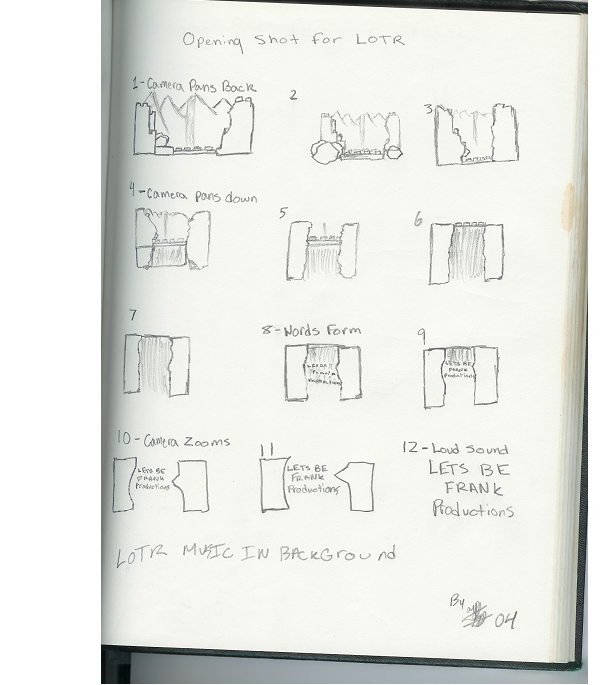 Opening Shot for LOTR
1-Camera Pans Back
2
3
4-Camera pans down
5
6
7
8-Words Form
9
LETS BE
FRANK
Productions
10-Camera Zooms
LETS BE
FRANK
Productions
11
LETS BE
FRANK
Productions
12-Loud Sound
LETS BE
FRANK
Productions
LOTR MUSIC IN BACKGROUND
By
04